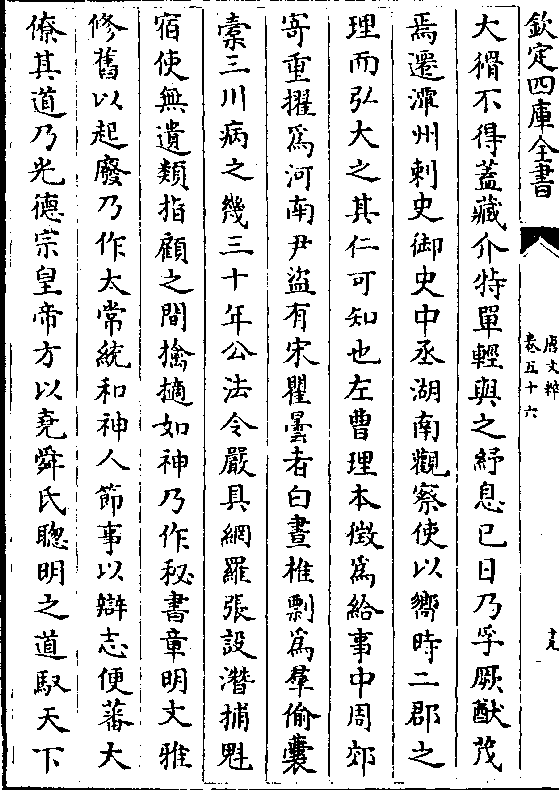 欽定四庫全書
唐文粹
卷五十六
大猾不得蓋藏介特單輕與之紓息已日乃孚厥猷茂
焉遷潭州刺史御史中丞湖南觀察使以嚮時二郡之
理而弘大之其仁可知也左曹理本徵為給事中周郊
寄重擢為河南尹盜有宋瞿曇者白晝椎剽為羣偷囊
橐三川病之幾三十年公法令嚴具網羅張設潛捕魁
宿使無遺類指顧之間擒擿如神乃作秘書章明文雅
修舊以起廢乃作太常統和神人節事以辯志便蕃大
僚其道乃光德宗皇帝方以堯舜氏聰明之道馭天下